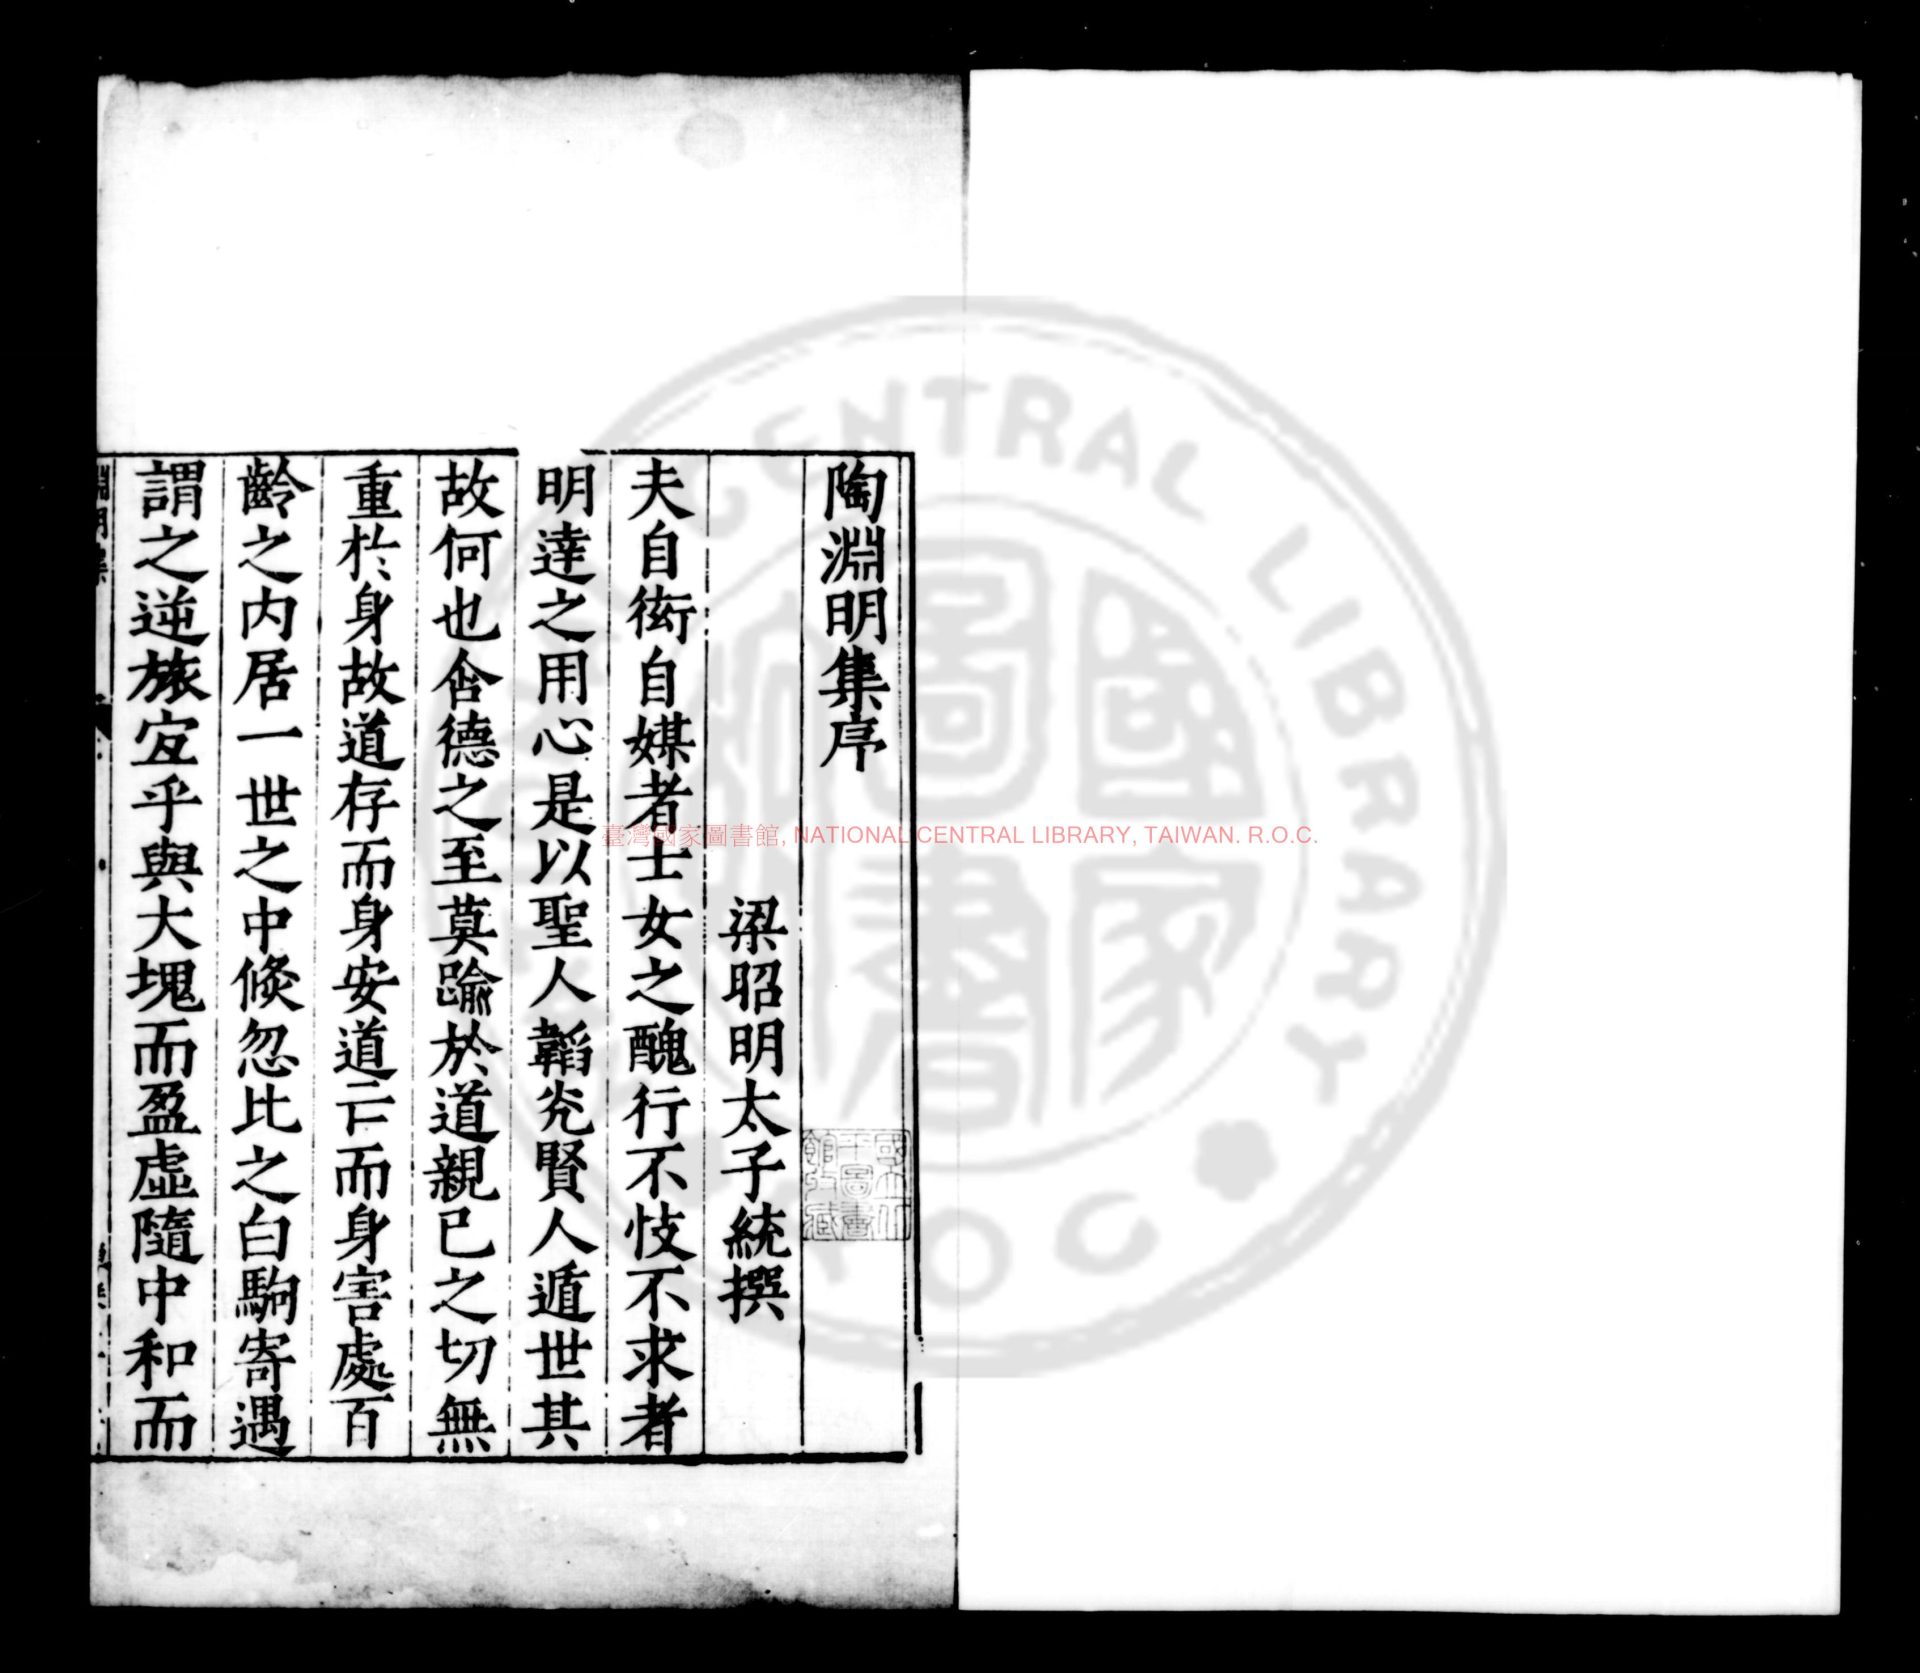 陶淵明集序
梁昭明太子統撰
夫自衒自媒者士女之醜行不忮不求者
明達之用心是以聖人韜光賢人遁世其
故何也含德之至莫踰於道親已之切無
重於身故道存而身安道亡而身害處百
齡之内居一世之中倏忽比之白駒寄遇
謂之逆旅宜乎與大塊而盈虛隨中和而
臺灣國家圖書館, NATIONAL CENTRAL LIBRARY, TAIWAN. R.O.C.
國家圖書
CENTRAL LIBRARY